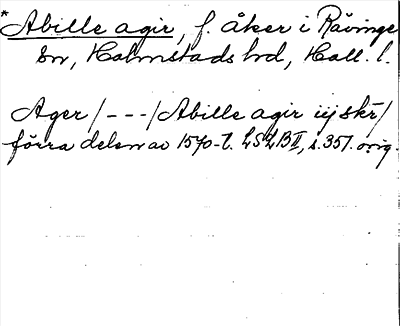 *Abille agir, f. åker i Rävinge
sn, Halmstads hd, Hall. l.
Ager /---/ Abille agir iij skr̄ /
förra delen av 1570-t. LSLB II, s. 351. orig.